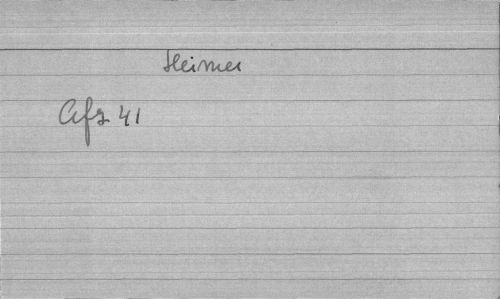 Heimer
Afz 41